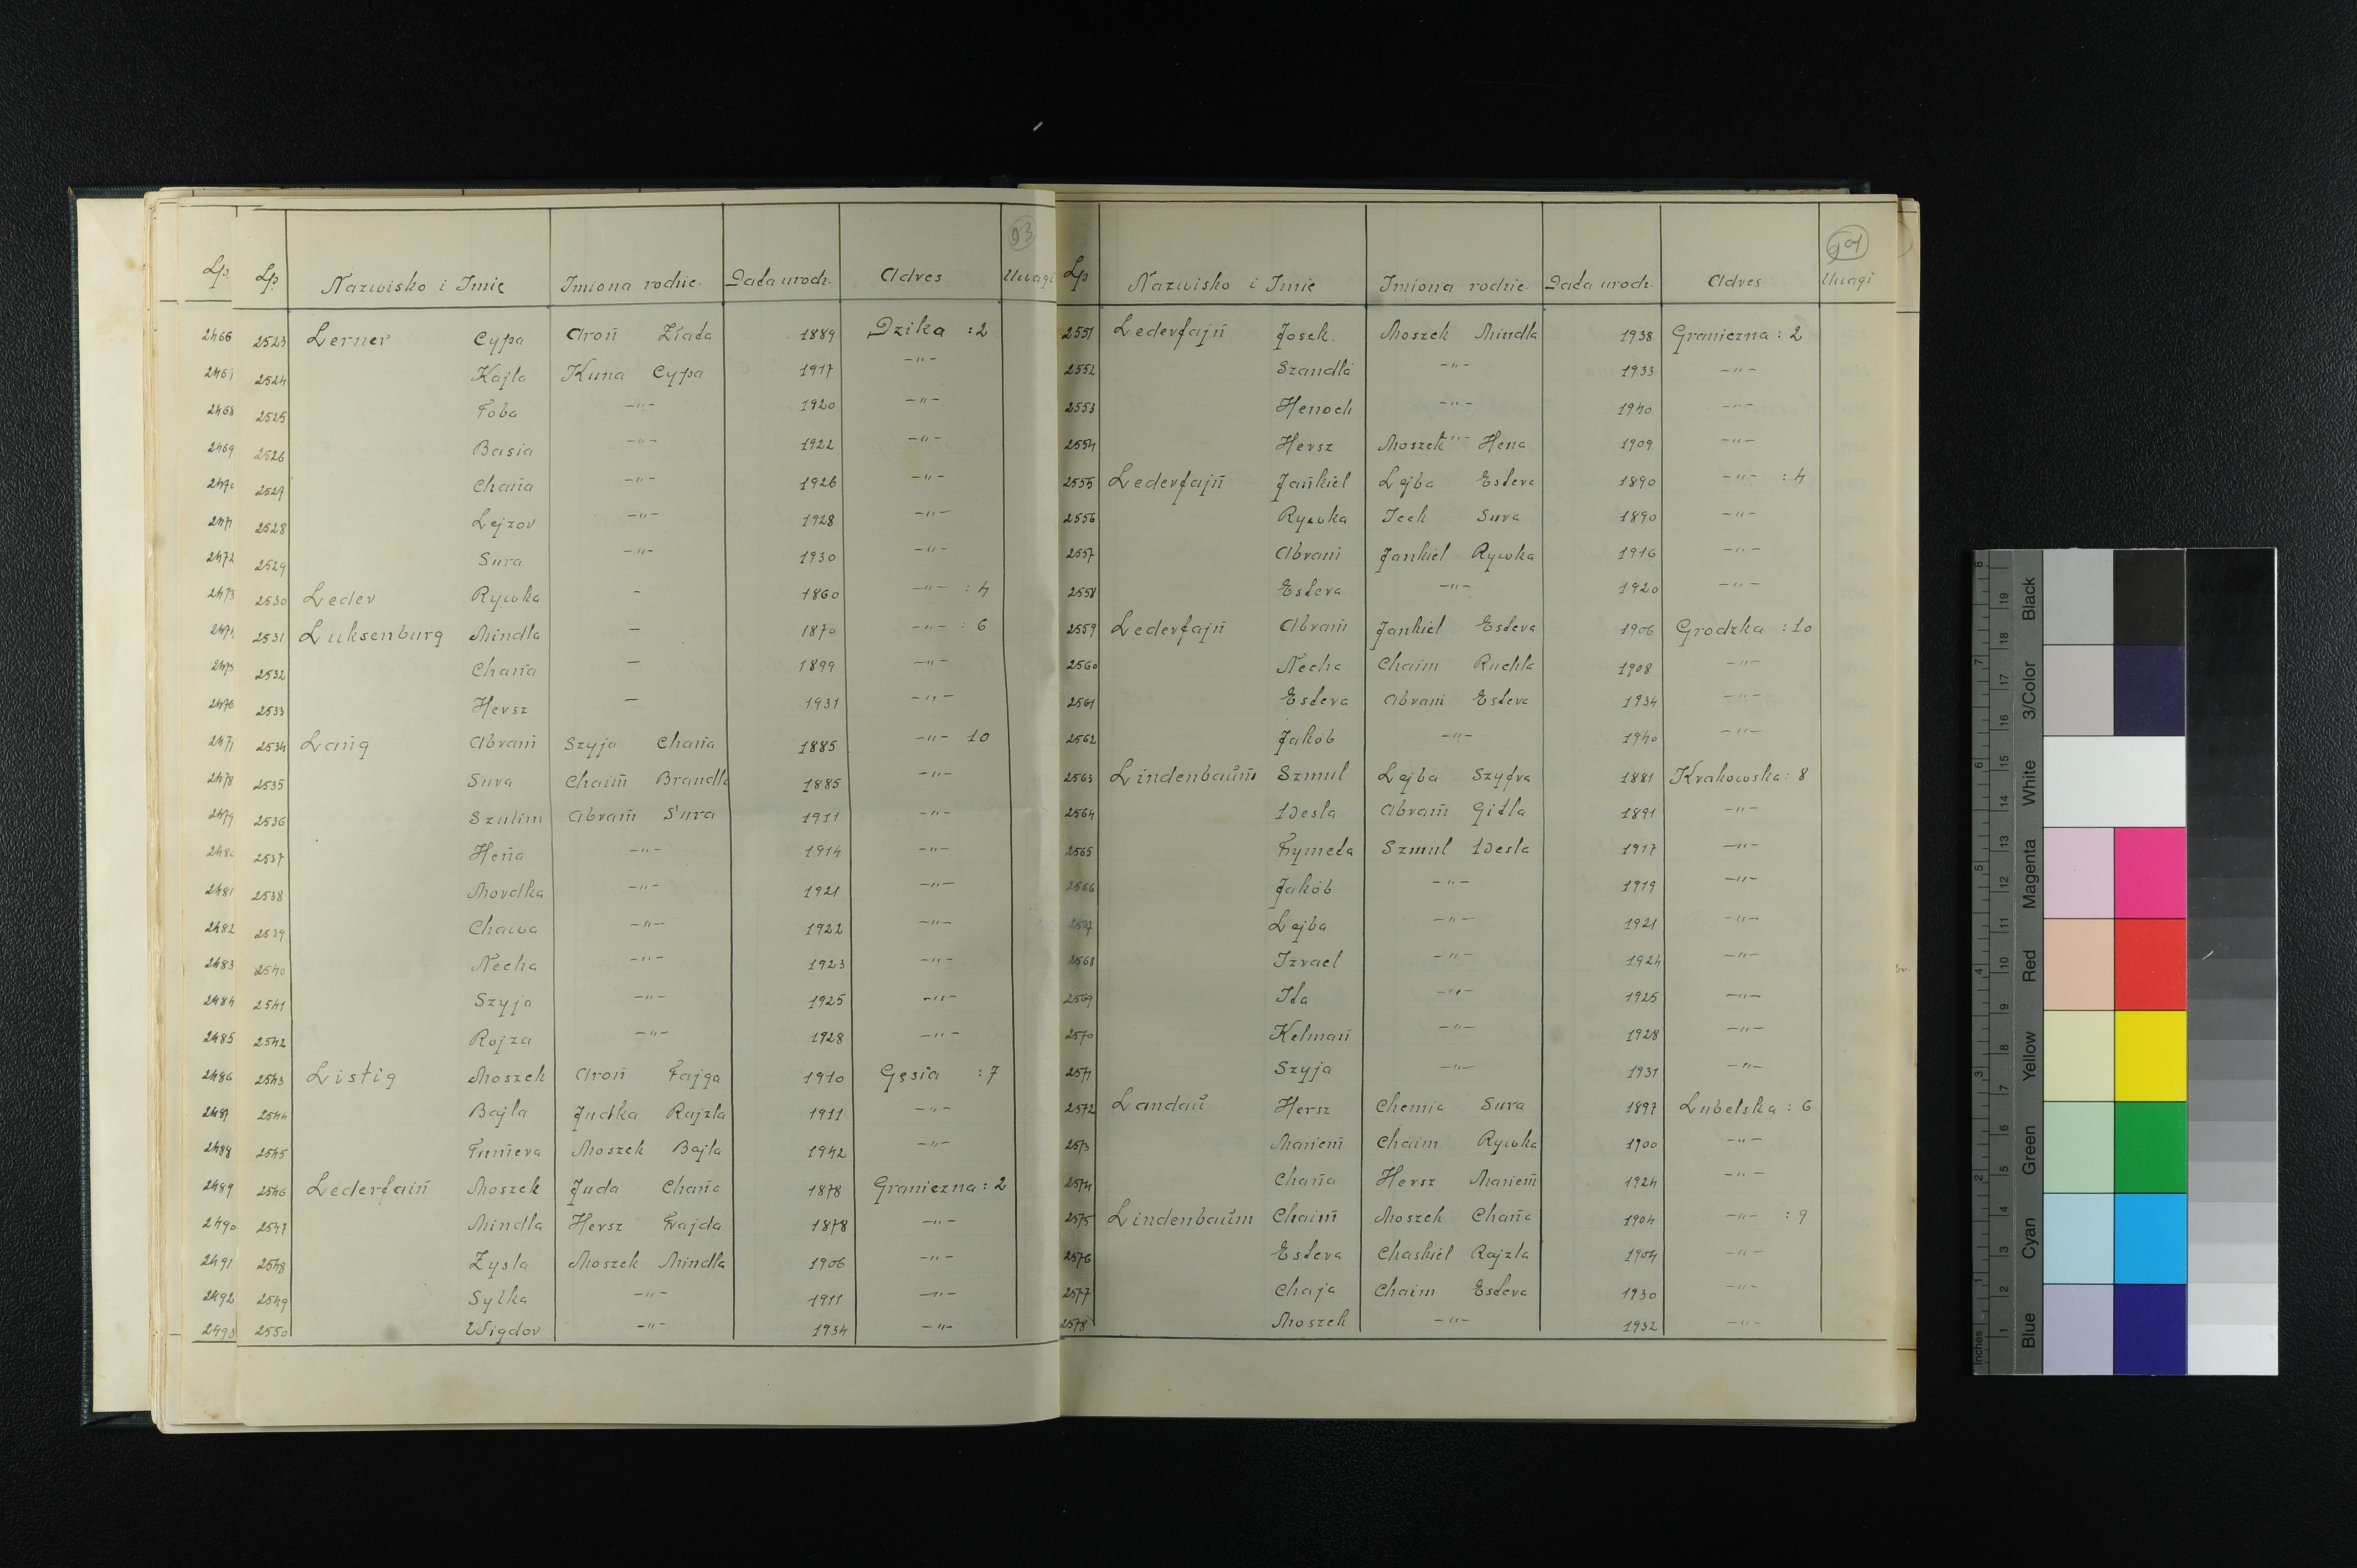 93
Lp. Lp. Nazwisko i Imię Imiona rodzic. Data urodz. Adres Uwagi
2466 2523 Lerner Cypa Aron Złata 1889 Dzika : 2
2467 2524 Kajla Kuna Cypa 1917 -"-
2468 2525 Toba -"- 1920 -"-
2469 2526 Basia -"- 1922 -"-
2470 2527 Chana -"- 1926 -"-
2471 2528 Lejzor -"- 1928 -"-
2472 2529 Sura -"- 1930 -"-
2473 2530 Leder Rywka - 1860 -"- : 4
2474 2531 Luksenburg Mindla - 1870 -"- : 6
2475 2532 Chana - 1899 -"-
2476 2533 Hersz - 1931 -"-
2477 2534 Lang Abram Szyja Chana 1885 -"- 10
2478 2535 Sura Chaim Brandla 1885 -"-
2479 2536 Szulim Abram Sura 1911 -"-
2480 2537 Hena -"- 1914 -"-
2481 2538 Mordka -"- 1921 -"-
2482 2539 Chawa -"- 1922 -"-
2483 2540 Necha -"- 1923 -"-
2484 2541 Szyja -"- 1925 -"-
2485 2542 Rojza -"- 1928 -"-
2486 2543 Listig Moszek Aron Fajga 1910 Gęsia : 7
2487 2544 Bajla Judka Rajzla 1911 -"-
2488 2545 Moszek Bajla 1942 -"-
2489 2546 Lederfain Moszek Juda Chana 1878 Graniczna : 2
2490 2547 Mindla Hersz Frajda 1878 -"-
2491 2548 Zysla Moszek Mindla 1906 -"-
2492 2549 Sylka -"- 1911 -"-
2493 2550 Wigdor -"- 1934 -"-
94
Lp Nazwisko i Imię Imiona rodzic. Data urodz. Adres Uwagi
2551 Lederfajn Josek Moszek Mindla 1938 Graniczna : 2
2552 Szandla -"- 1933 -"-
2553 Henoch -"- 1940 -"-
2554 Hersz Moszek Hena 1909 -"-
2555 Lederfajn Jankiel Lejba Estera 1890 -"- : 4
2556 Rywka Icek Sura 1890 -"-
2557 Abram Jankiel Rywka 1916 -"-
2558 Estera -"- 1920 -"-
2559 Lederfajn Abram Jankiel Estera 1906 Grodzka : 10
2560 Necha Chaim Ruchla 1908 -"-
2561 Estera Abram Estera 1934 -"-
2562 Jakób -"- 1940 -"-
2563 Lindenbaum Szmul Lejba Szyfra 1881 Krakowska : 8
2564 Wesla Abram Gitla 1891 -"-
2565 Frymeta Szmul Wesla 1917 -"-
2566 Jakób -"- 1919 -"-
2567 Lejba -"- 1921 -"-
2568 Izrael -"- 1924 -"-
2569 Ita -"- 1925 -"-
2570 Kelman -"- 1928 -"-
2571 Szyja -"- 1931 -"-
2572 Landau Hersz Chemia Sura 1897 Lubelska : 6
2573 Mariem Chaim Rywka 1900 -"-
2574 Chana Hersz Mariem 1924 -"-
2575 Lindenbaum Chaim Moszek Chana 1904 -"- : 9
2576 Estera Chaskiel Rajzla 1904 -"-
2577 Chaja Chaim Estera 1930 -"-
2578 Moszek -"- 1932 -"-
Inches 1 2 3 4 5 6 7 8
1 2 3 4 5 6 7 8 9 10 11 12 13 14 15 16 17 18 19
Blue Cyan Green Yellow Red Magenta White 3/Color Black